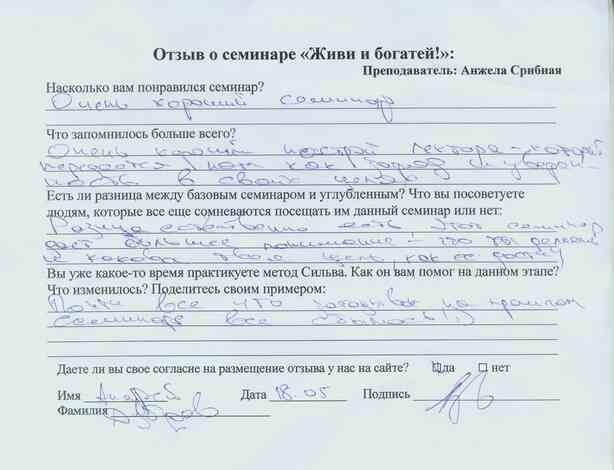 Отзыв о семинаре «Живи и богатей!»:
Преподаватель: Анжела Срибная
Насколько вам понравился семинар?
Очень хороший семинар
Что запомнилось больше всего?
Очень хороший настрой лектора – который
передается нам как заряд и уверен-
ность в своих целях
Есть ли разница между базовым семинаром и углубленным? Что вы посоветуете
людям, которые все еще сомневаются посещать им данный семинар или нет:
Разница естественно есть, этот семинар
дает большее понимание – что ты делаешь
и какова твоя цель, как ее достичь
Вы уже какое-то время практикуете метод Сильва. Как он вам помог на данном этапе?
Что изменилось? Поделитесь своим примером:
Почти все что на прошлом
семинаре все сбылось!)
Даете ли вы свое согласие на размещение отзыва у нас на сайте? да нет
Имя Андрей Дата 18.05 Подпись
Фамилия